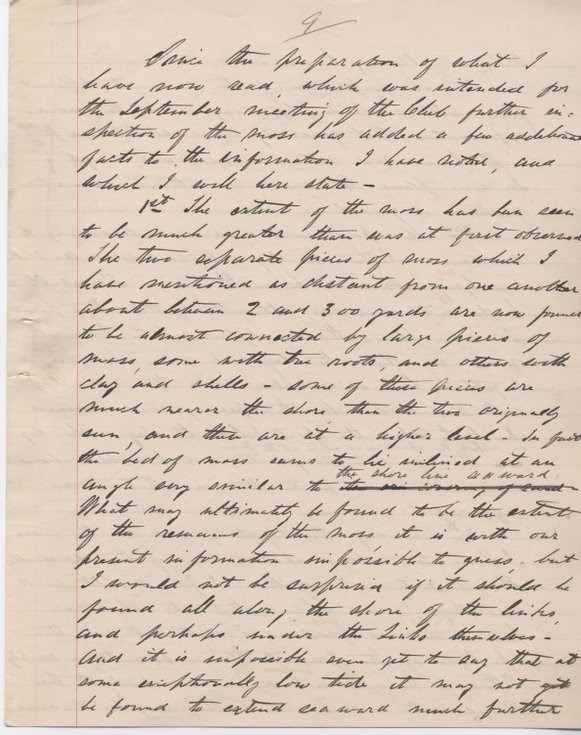 9
Since the preparation of what I
have now read, which was intended for
the September meeting of the Club further in=
spection of the moss has added a few additional
facts to the information I have noted, and
which I will here state -
1st The extent of the moss has been seen
to be much greater than was at first observed
The two separate pieces of moss which I
have mentioned as distant from one another
about between 2 and 300 yards are now found
to be almost connected by large pieces of
moss, some with tree roots, and others with
clay and shells - some of these pieces are
much nearer the shore than the two originally
seen, and these are at a higher level - In fact
the bed of moss seems to be inclined at an
the shore line seaward
angle very similar to the covering of sand
What may ultimately be found to be the extent
of the remains of the moss it is with our
present information impossible to guess, but
I would not be surprised if it should be
found all along the shore of the links,
and perhaps under the links themselves -
And it is impossible even yet to say that at
some exceptionally low tide it may not yet
be found to extend seaward much further